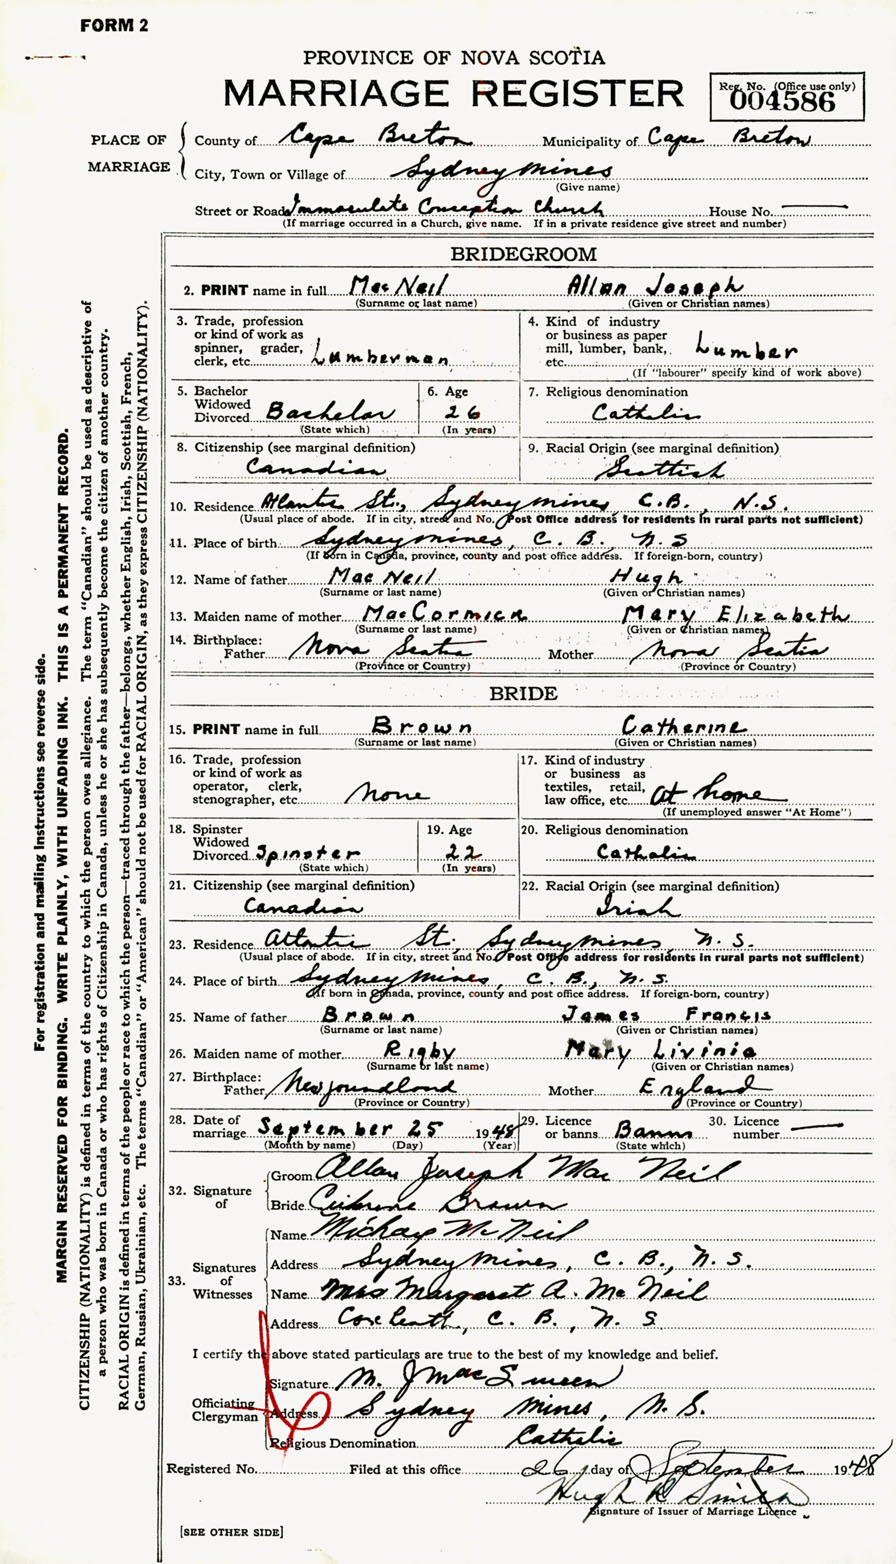 FORM 2
PROVINCE OF NOVA SCOTIA
MARRIAGE REGISTER
Reg. No. (Office use only)
004586
PLACE OF MARRIAGE
County of Cape Breton Municipality of Cape Breton
City, Town or Village of Sydney Mines
(Give name)
Street or Road Immaculate Conception Church House No. —
(If marriage occurred in a Church, give name. If in a private residence give street and number)
BRIDEGROOM
2. PRINT name in full MacNeil Allan Joseph
(Surname or last name) (Given or Christian names)
3. Trade, profession or kind of work as spinner, grader, clerk, etc. Lumberman
4. Kind of industry or business as paper mill, lumber, bank, etc. Lumber
(If "labourer" specify kind of work above)
5. Bachelor Widowed Divorced Bachelor
(State which)
6. Age 26
(In years)
7. Religious denomination
Catholic
8. Citizenship (see marginal definition)
Canadian
9. Racial Origin (see marginal definition)
Scottish
10. Residence Atlantic St., Sydney Mines, C.B., N.S.
(Usual place of abode. If in city, street and No. Post Office address for residents in rural parts not sufficient)
11. Place of birth Sydney Mines, C. B., N. S
(If born in Canada, province, county and post office address. If foreign-born, country)
12. Name of father MacNeil Hugh
(Surname or last name) (Given or Christian names)
13. Maiden name of mother MacCormick Mary Elizabeth
(Surname or last name) (Given or Christian names)
14. Birthplace: Father Nova Scotia Mother Nova Scotia
(Province or Country) (Province or Country)
BRIDE
15. PRINT name in full Brown Catherine
(Surname or last name) (Given or Christian names)
16. Trade, profession or kind of work as operator, clerk, stenographer, etc. None
17. Kind of industry or business as textiles, retail, law office, etc. At home
(If unemployed answer "At Home")
18. Spinster Widowed Divorced Spinster
(State which)
19. Age 22
(In years)
20. Religious denomination
Catholic
21. Citizenship (see marginal definition)
Canadian
22. Racial Origin (see marginal definition)
Irish
23. Residence Atlantic St., Sydney Mines, N. S.
(Usual place of abode. If in city, street and No. Post Office address for residents in rural parts not sufficient)
24. Place of birth Sydney Mines, C. B., N. S.
(If born in Canada, province, county and post office address. If foreign-born, country)
25. Name of father Brown James Francis
(Surname or last name) (Given or Christian names)
26. Maiden name of mother Rigby Mary Livinia
(Surname or last name) (Given or Christian names)
27. Birthplace: Father Newfoundland Mother England
(Province or Country) (Province or Country)
28. Date of marriage September 25 1948
(Month by name) (Day) (Year)
29. Licence or banns Banns
(State which)
30. Licence number —
32. Signature of
Groom Allan Joseph Mac Neil
Bride Catherine Brown
33. Signatures of Witnesses
Name Mickay McNeil
Address Sydney Mines, C. B., N. S.
Name Mrs Margaret A. McNeil
Address Coxheath, C. B., N. S
I certify the above stated particulars are true to the best of my knowledge and belief.
Officiating Clergyman
Signature M. J MacSween
Address Sydney Mines, N. S.
Religious Denomination Catholic
Registered No. Filed at this office 26 day of September 1948
Hugh R Smith
Signature of Issuer of Marriage Licence
[SEE OTHER SIDE]
For registration and mailing instructions see reverse side.
MARGIN RESERVED FOR BINDING. WRITE PLAINLY, WITH UNFADING INK. THIS IS A PERMANENT RECORD.
CITIZENSHIP (NATIONALITY) is defined in terms of the country to which the person owes allegiance. The term "Canadian" should be used as descriptive of
a person who was born in Canada or who has rights of Citizenship in Canada, unless he or she has subsequently become the citizen of another country.
RACIAL ORIGIN is defined in terms of the people or race to which the person—traced through the father—belongs, whether English, Irish, Scottish, French,
German, Russian, Ukrainian, etc. The terms "Canadian" or "American" should not be used for RACIAL ORIGIN, as they express CITIZENSHIP (NATIONALITY).